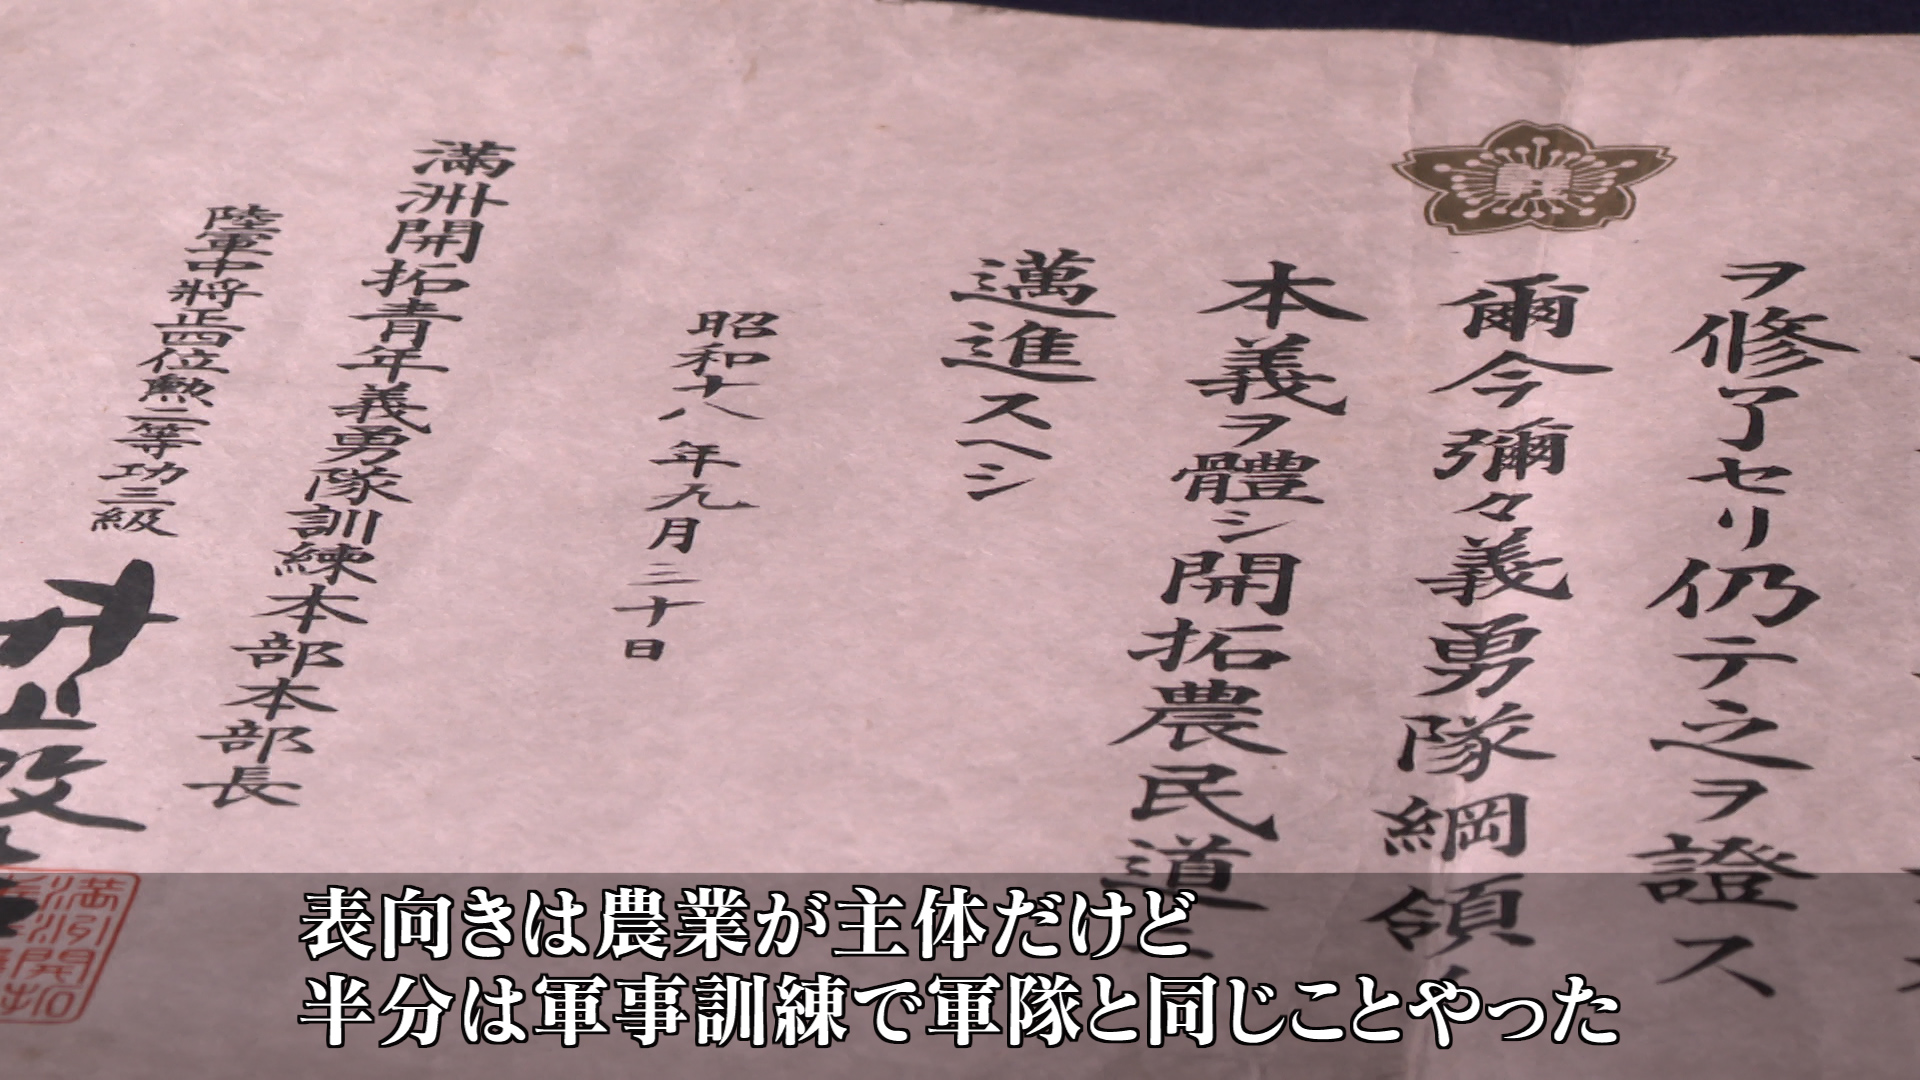 義
ヲ修了セリ仍テ之ヲ證ス
爾今彌々義勇隊綱領
本義ヲ體シ開拓農民道ニ
邁進スヘシ
昭和十八年九月三十日
満洲開拓青年義勇隊訓練本部本部長
陸軍中將正四位勲二等功三級
井上政
満洲開拓
表向きは農業が主体だけど
半分は軍事訓練で軍隊と同じことやった